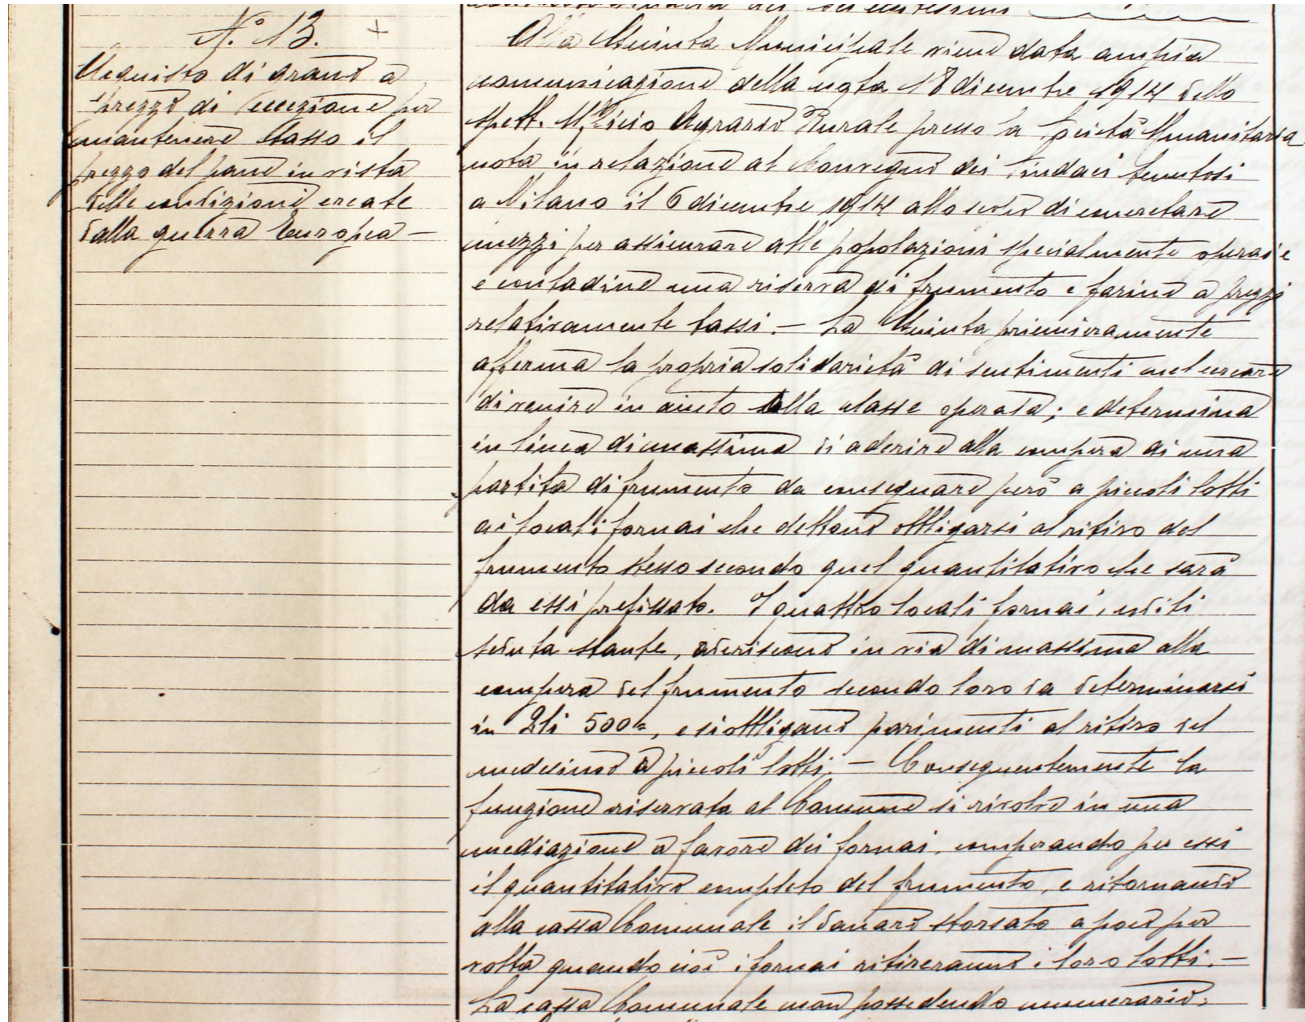 N.° 13.
Acquisto di grano a
prezzo di eccezione per
mantenere basso il
prezzo del pane in vista
delle condizioni create
dalla guerra Europea –
Alla Giunta Municipale viene data ampia
comunicazione della nota 18 dicembre 1914 dello
spett. Ufficio Agrario Rurale presso la Società Umanitaria
nota in relazione al Convegno dei Sindaci tenutosi
a Milano il 6 dicembre 1914 allo scopo di concretare
mezzi per assicurare alle popolazioni specialmente operaie
e contadine una riserva di frumento e farine a prezzi
relativamente bassi. – La Giunta primieramente
afferma la propria solidarietà di sentimenti nel cercare
di venire in aiuto alla classe operaia; e determina
in linea di massima di aderire alla compera di una
partita di frumento da consegnare però a piccoli lotti
ai locali fornai che debbono obbligarsi al ritiro del
frumento stesso secondo quel quantitativo che sarà
da essi prefissato. I quattro locali fornai, uditi
seduta stante, aderiscono in via di massima alla
compera del frumento secondo loro da determinarsi
in Qli 500=, e si obbligano parimenti al ritiro del
medesimo a piccoli lotti. – Conseguentemente la
funzione riservata al Comune si risolve in una
mediazione a favore dei fornai, comperando per essi
il quantitativo completo del frumento, e ritornando
alla cassa Comunale il danaro sborsato a poco per
volta quando cioè i fornai ritireranno i loro lotti. –
La cassa Comunale non possedendo numerario,